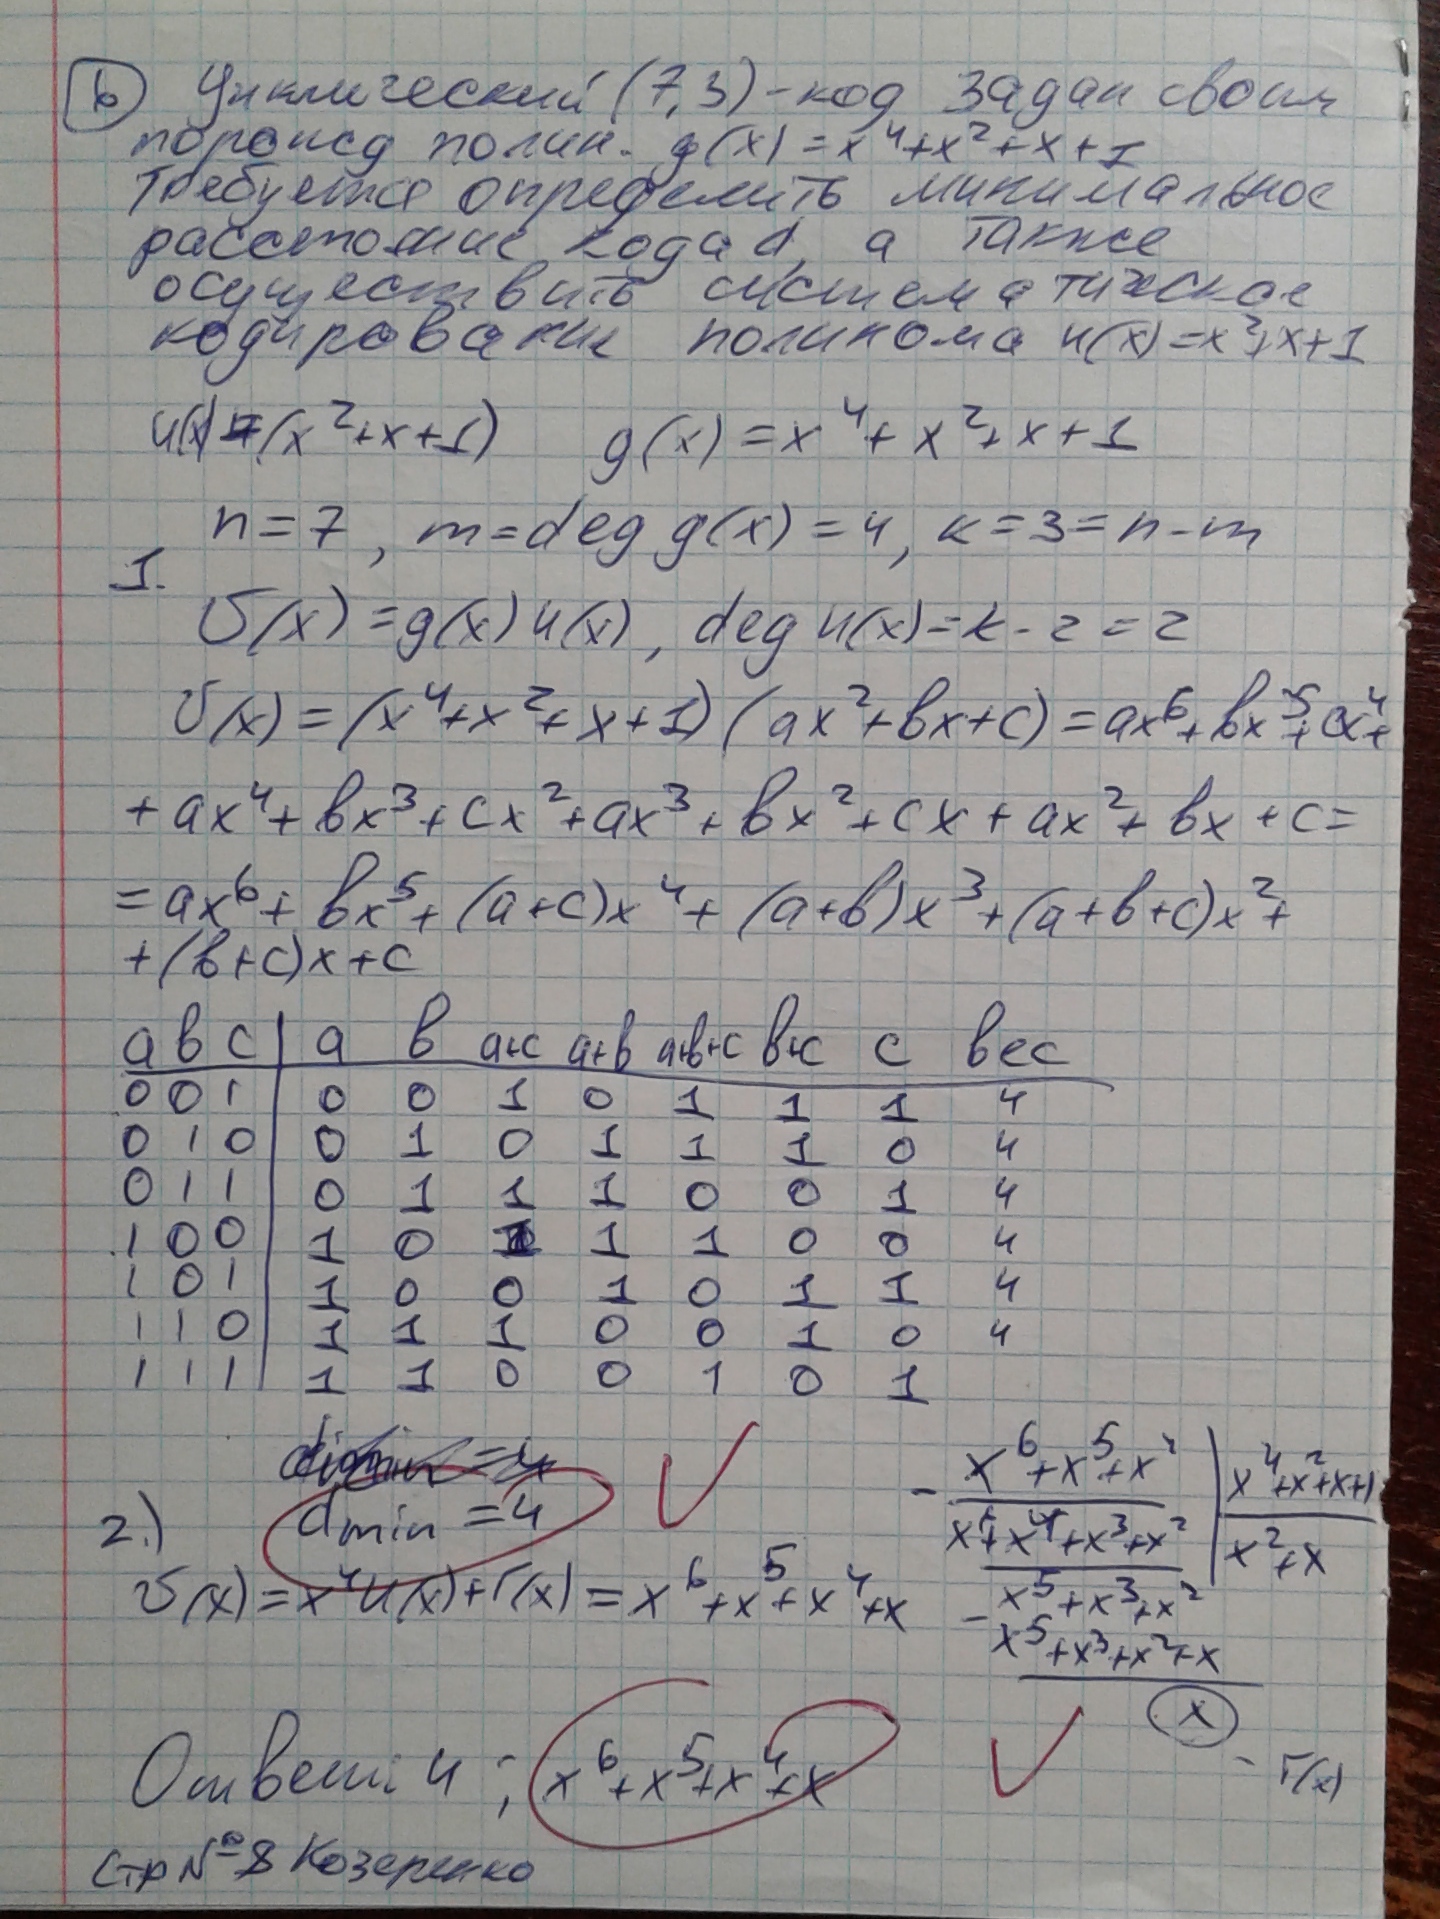 6 Циклический (7,3)-код задан своим
пороисд полин. g(x)=x⁴+x²+x+1
Требуется определить минимальное
расстояние кода d, а также
осуществить систематическое
кодирование полинома u(x)=x²+x+1
u(x)=(x²+x+1) g(x)=x⁴+x²+x+1
n=7, m=deg g(x)=4, k=3=n-m
1.
v(x)=g(x)u(x), deg u(x)=k-2=2
v(x)=(x⁴+x²+x+1)(ax²+bx+c)=ax⁶+bx⁵+cx⁴+
+ax⁴+bx³+cx²+ax³+bx²+cx+ax²+bx+c=
=ax⁶+bx⁵+(a+c)x⁴+(a+b)x³+(a+b+c)x²+
+(b+c)x+c
a b c | a b a+c a+b a+b+c b+c c вес
0 0 1 | 0 0 1 0 1 1 1 4
0 1 0 | 0 1 0 1 1 1 0 4
0 1 1 | 0 1 1 1 0 0 1 4
1 0 0 | 1 0 1 1 1 0 0 4
1 0 1 | 1 0 0 1 0 1 1 4
1 1 0 | 1 1 1 0 0 1 0 4
1 1 1 | 1 1 0 0 1 0 1
dmin=4
2.)
v(x)=x⁴u(x)+r(x)=x⁶+x⁵+x⁴+x
- x⁶+x⁵+x⁴ | x⁴+x²+x+1
x⁶+x⁴+x³+x² | x²+x
x⁵+x³+x²
- x⁵+x³+x²+x
x
- r(x)
Ответ: 4; x⁶+x⁵+x⁴+x
Стр №8 Козеренко